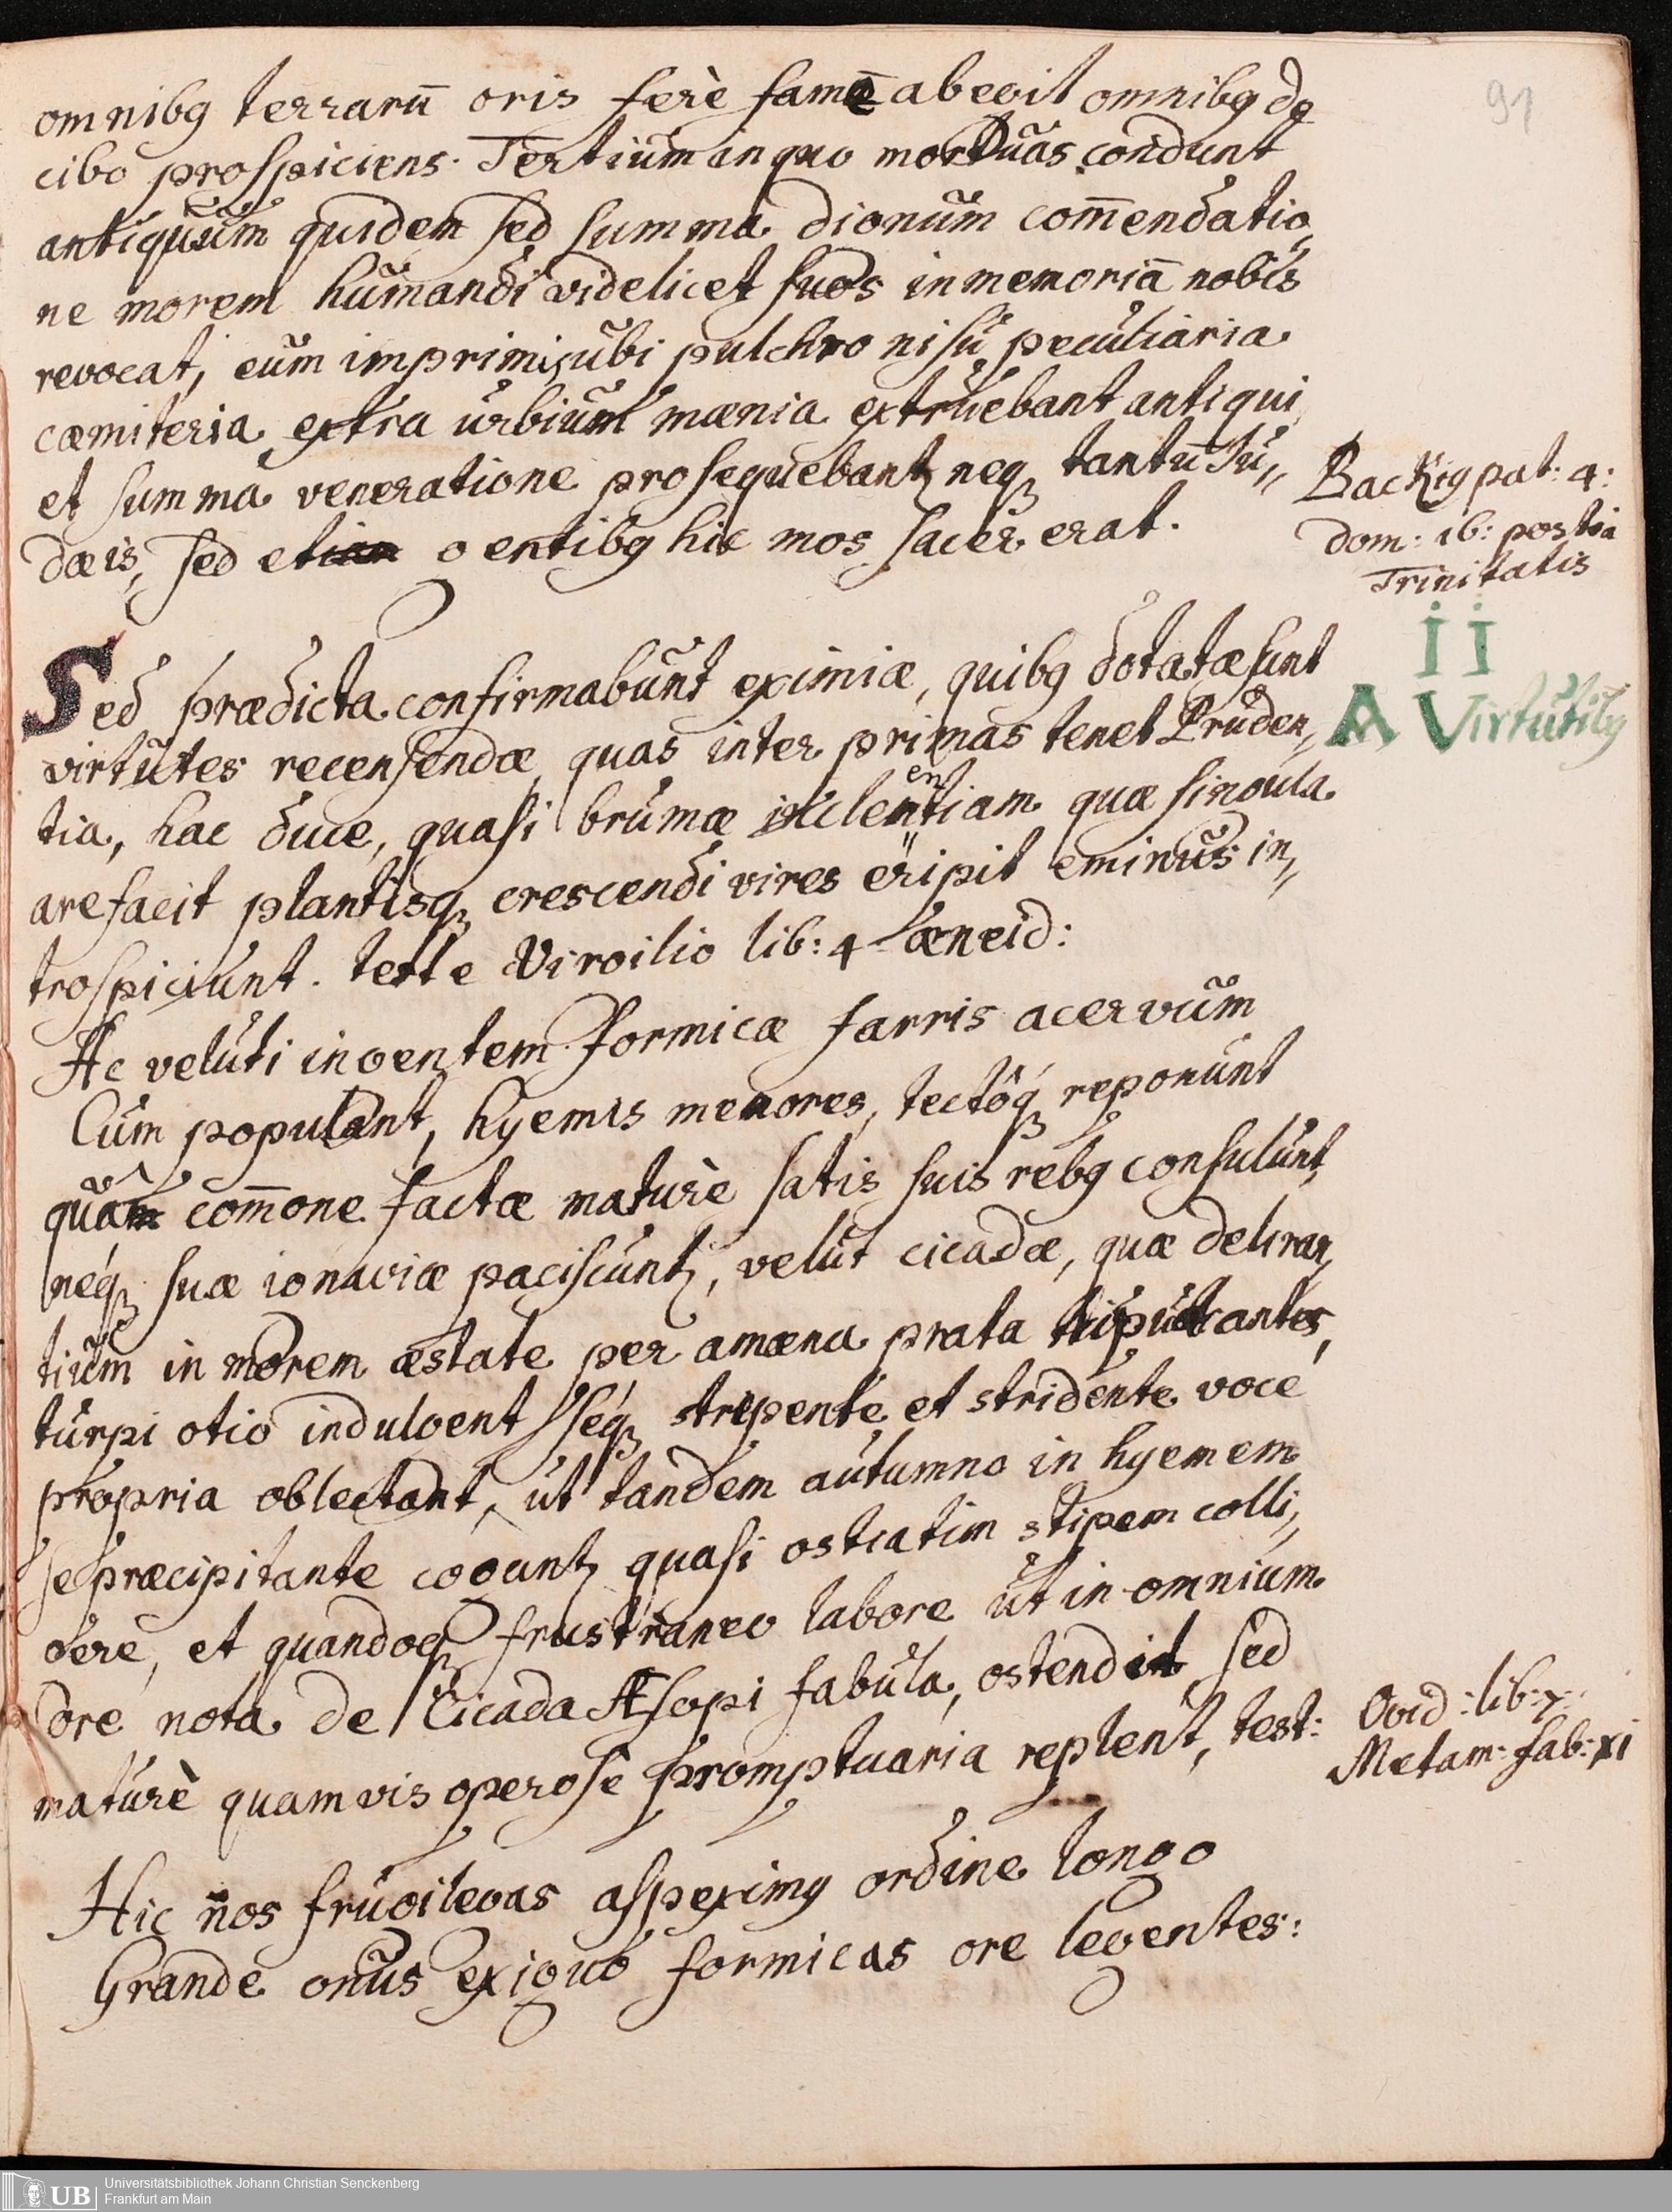 91
omnibꝯ terrarū oris ferè famē abegit omnibꝯ dq
cibo prospiciens. Tertium in quo mortuas condunt
antiquum quidem sed summa dignum com̄endatio„
ne morem humandi videlicet suos in memoriā nobis
revocat, cum imprimis ubi pulchro nisu peculiaria
cæmiteria extra urbium mænia extruebant antiqui
et summa veneratione prosequebantꝫ neqꝫ tantū Ju„
dæis, sed etiam gentibꝯ hic mos sacer erat.
Backiꝯ pat: 4:
dom: 16: post ia
Trinitatis
Sed prædicta confirmabunt eximiæ, quibꝯ dotatæ sunt
virtutes recensendæ, quas inter primas tenet Pruden„
tia, hac duce, quasi brumæ inclementiam quæ singula
arefacit plantisqꝫ crescendi vires eripit eminus in„
trospiciunt. teste Virgilio lib: 4 æneid:
II
A Virtutibꝯ
Ac veluti ingentem formicæ farris acervum
Cum populant, hyemis memores, tectôqꝫ reponunt
quam com̄one factæ maturè satis suis rebꝯ consulunt,
néqꝫ suæ ignaviæ paciscuntꝫ, velut cicadæ, quæ deliran„
tium in morem æstate per amæna prata tripudiantes,
turpi otio indulgent séqꝫ strepente et stridente voce
propria oblectant, ut tandem autumno in hyemem
se præcipitante coguntꝫ quasi ostiatim stipem colli„
gere, et quandoqꝫ frustraneo labore ut in omnium
ore nota de Cicada Æsopi fabula, ostendit sed
maturè quamvis operose promptuaria replent, test:
Ovid: lib: 7:
Metam: fab: XI
Hic nos frugilegas aspeximꝯ ordine longo
Grande onus exiguo formicas ore legentes:
Universitätsbibliothek Johann Christian Senckenberg
Frankfurt am Main
UB